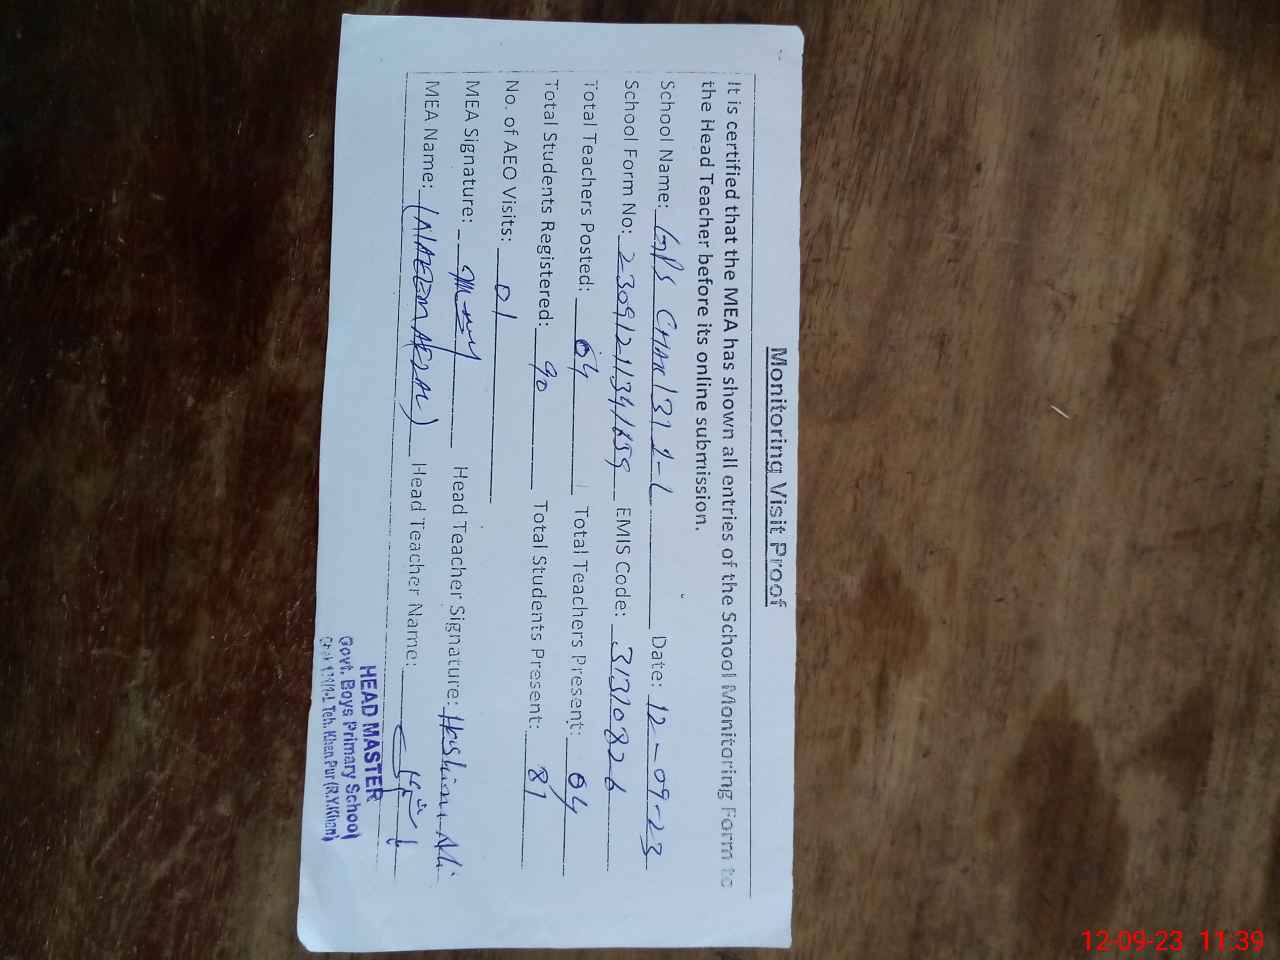 Monitoring Visit Proof
It is certified that the MEA has shown all entries of the School Monitoring Form to
the Head Teacher before its online submission.
School Name: GPS CHAK 131 1-L Date: 12-09-23
School Form No: EMIS Code: 31310826
Total Teachers Posted: 04 Total Teachers Present: 04
Total Students Registered: 90 Total Students Present: 81
No. of AEO Visits: 01
MEA Signature: Head Teacher Signature: Hashim Ali
MEA Name: Head Teacher Name:
HEAD MASTER
Govt. Boys Primary School
Teh. Khan Pur (R.Y.Khan)
12-09-23 11:39